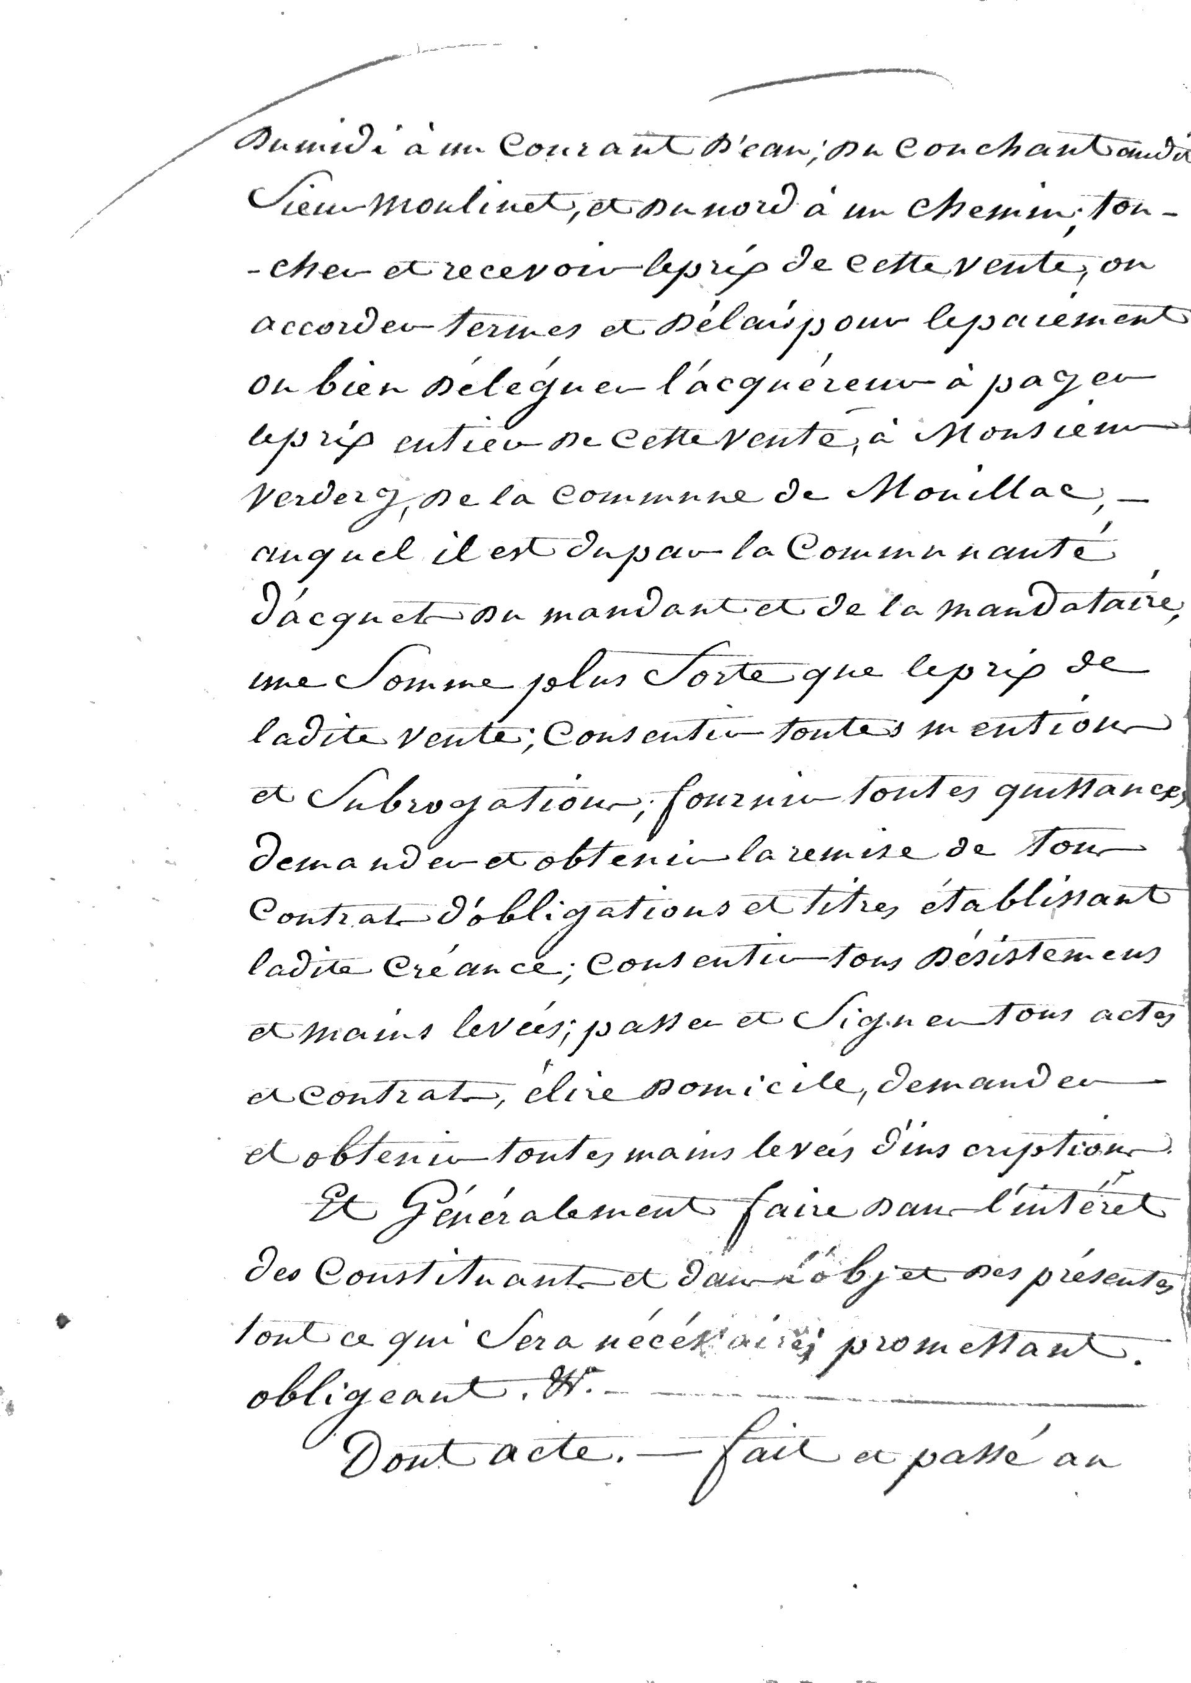 Du midi à un Courant D'eau; Du Couchant audit
Sieur Moulinet, et Du nord à un Chemin; tou-
-cher et recevoir le prix de cette vente, ou
accorder termes et Délais pour le paiement
ou bien Déléguer l'acquéreur à payer
le prix entier De Cette vente, à Monsieur
Verdery, De la Commune de Mouillac, —
auquel il est du par la Communauté
d'acquet Du mandant et de la mandataire,
une Somme plus Forte que le prix de
ladite vente; Consentir toutes mentions
et Subrogations; fournir toutes quittances,
demander et obtenir la remise de tous
Contrats d'obligations et titres établissant
ladite Créance; Consentir tous Désistemens
et mains levées; passer et Signer tous actes
et contrats, élire Domicile, demander
et obtenir toutes mains levées d'inscriptions.
Et Généralement faire Dans l'intéret
des Constituants et dans l'objet Des présentes
tout ce qui Sera nécéssaire; promettant.
obligeant. &a. —
Dont acte. — fait et passé au